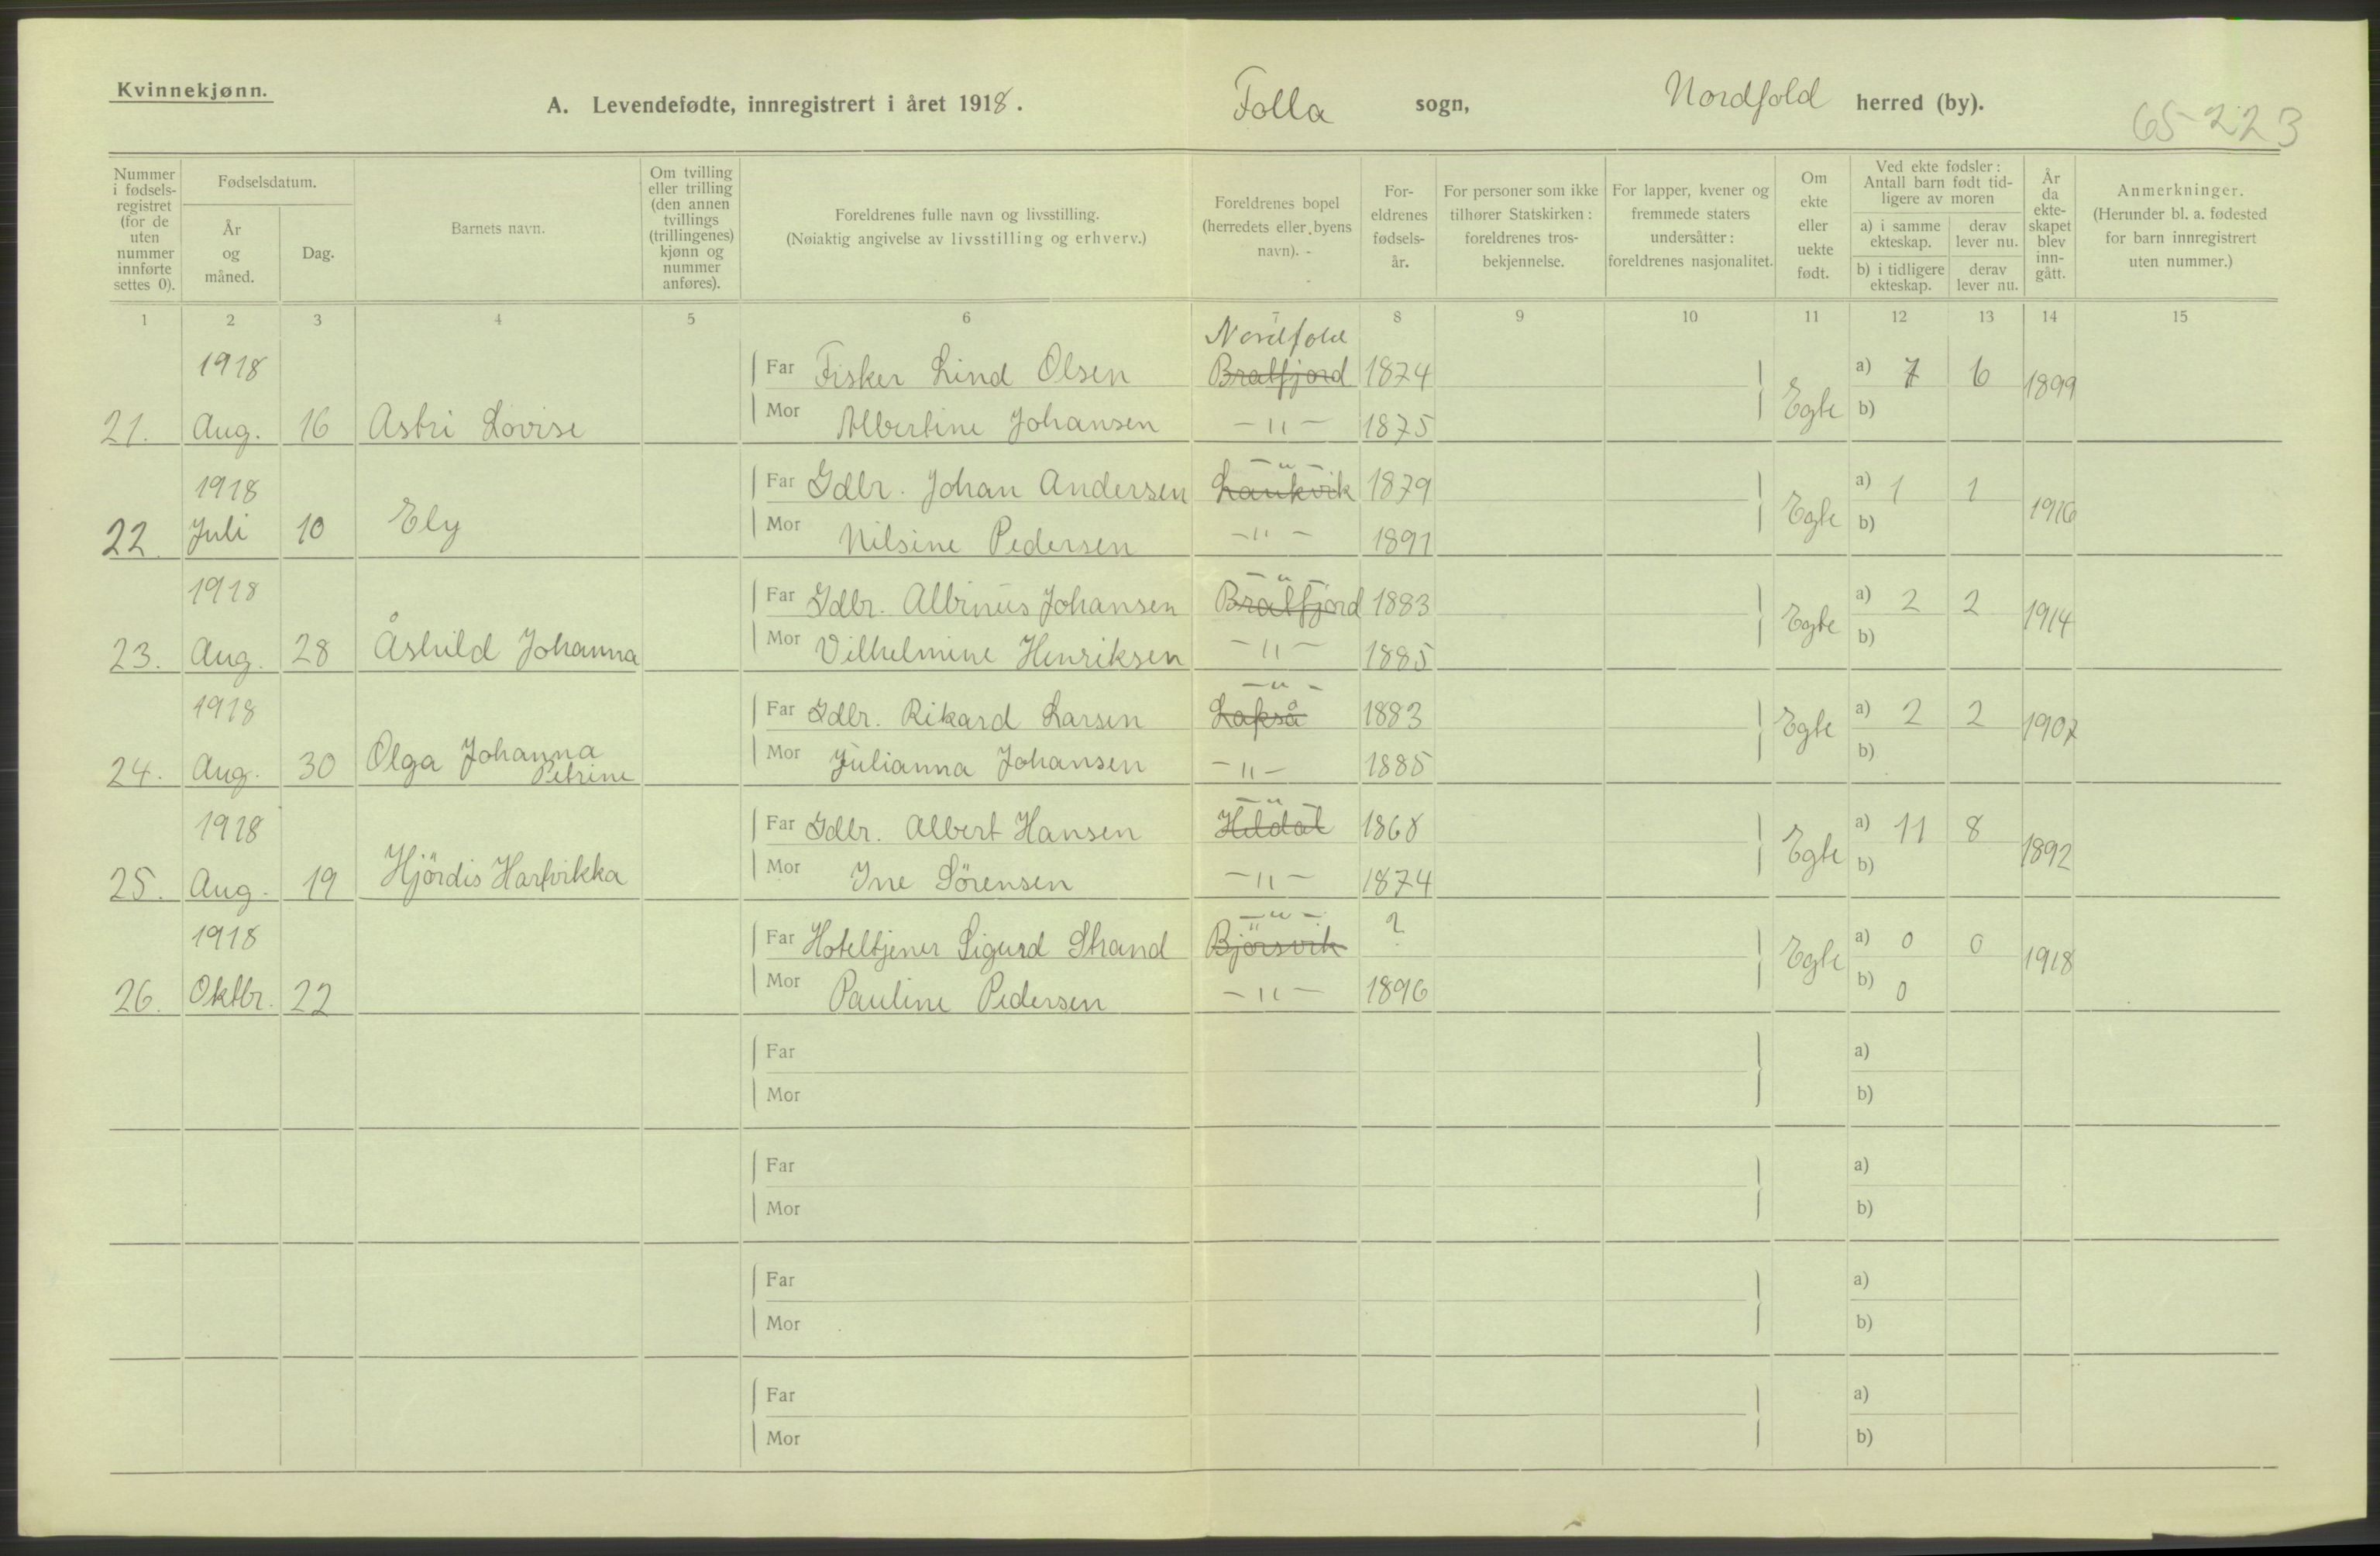 Kvinnekjønn.
A. Levendefødte, innregistrert i året 1918.
Folla sogn, Nordfold herred (by).
65-223
Nummer i fødsels-registret (for de uten nummer innførte settes 0).
Fødselsdatum.
År og måned.
Dag.
Barnets navn.
Om tvilling eller trilling (den annen tvillings (trillingenes) kjønn og nummer anføres).
Foreldrenes fulle navn og livsstilling.
(Nøiaktig angivelse av livsstilling og erhverv.)
Foreldrenes bopel (herredets eller byens navn).
For-eldrenes fødsels-år.
For personer som ikke tilhører Statskirken: foreldrenes tros-bekjennelse.
For lapper, kvener og fremmede staters undersåtter: foreldrenes nasjonalitet.
Om ekte eller uekte født.
Ved ekte fødsler: Antall barn født tid-ligere av moren
a) i samme ekteskap.
derav lever nu.
b) i tidligere ekteskap.
derav lever nu.
År da ekte-skapet blev inn-gått.
Anmerkninger.
(Herunder bl. a. fødested for barn innregistrert uten nummer.)
1 2 3 4 5 6 7 8 9 10 11 12 13 14 15
Nordfold
1918 Far Fisker Lind Olsen Bratfjord 1874 a) 7 6 1899
21. Aug. 16 Astri Lovise Mor Albertine Johansen -"- 1875 Egte b)
-"-
1918 Far Gdbr. Johan Andersen Laukvik 1879 a) 1 1 1916
22. Juli 10 Ely Mor Nilsine Pedersen -"- 1891 Egte b)
-"-
1918 Far Gdbr. Albinus Johansen Bratfjord 1883 a) 2 2 1914
23. Aug. 28 Åshild Johanna Mor Vilhelmine Henriksen -"- 1885 Egte b)
-"-
1918 Far Gdbr. Rikard Larsen Lakså 1883 a) 2 2 1907
24. Aug. 30 Olga Johanna Petrine Mor Julianna Johansen -"- 1885 Egte b)
-"-
1918 Far Gdbr. Albert Hansen Hildal 1868 a) 11 8 1892
25. Aug. 19 Hjördis Hartvikka Mor Ine Sörensen -"- 1874 Egte b)
-"-
1918 Far Hoteltjener Sigurd Strand Björsvik ? a) 0 0 1918
26. Oktbr. 22 Mor Pauline Pedersen -"- 1896 Egte b) 0
Far a)
Mor b)
Far a)
Mor b)
Far a)
Mor b)
Far a)
Mor b)